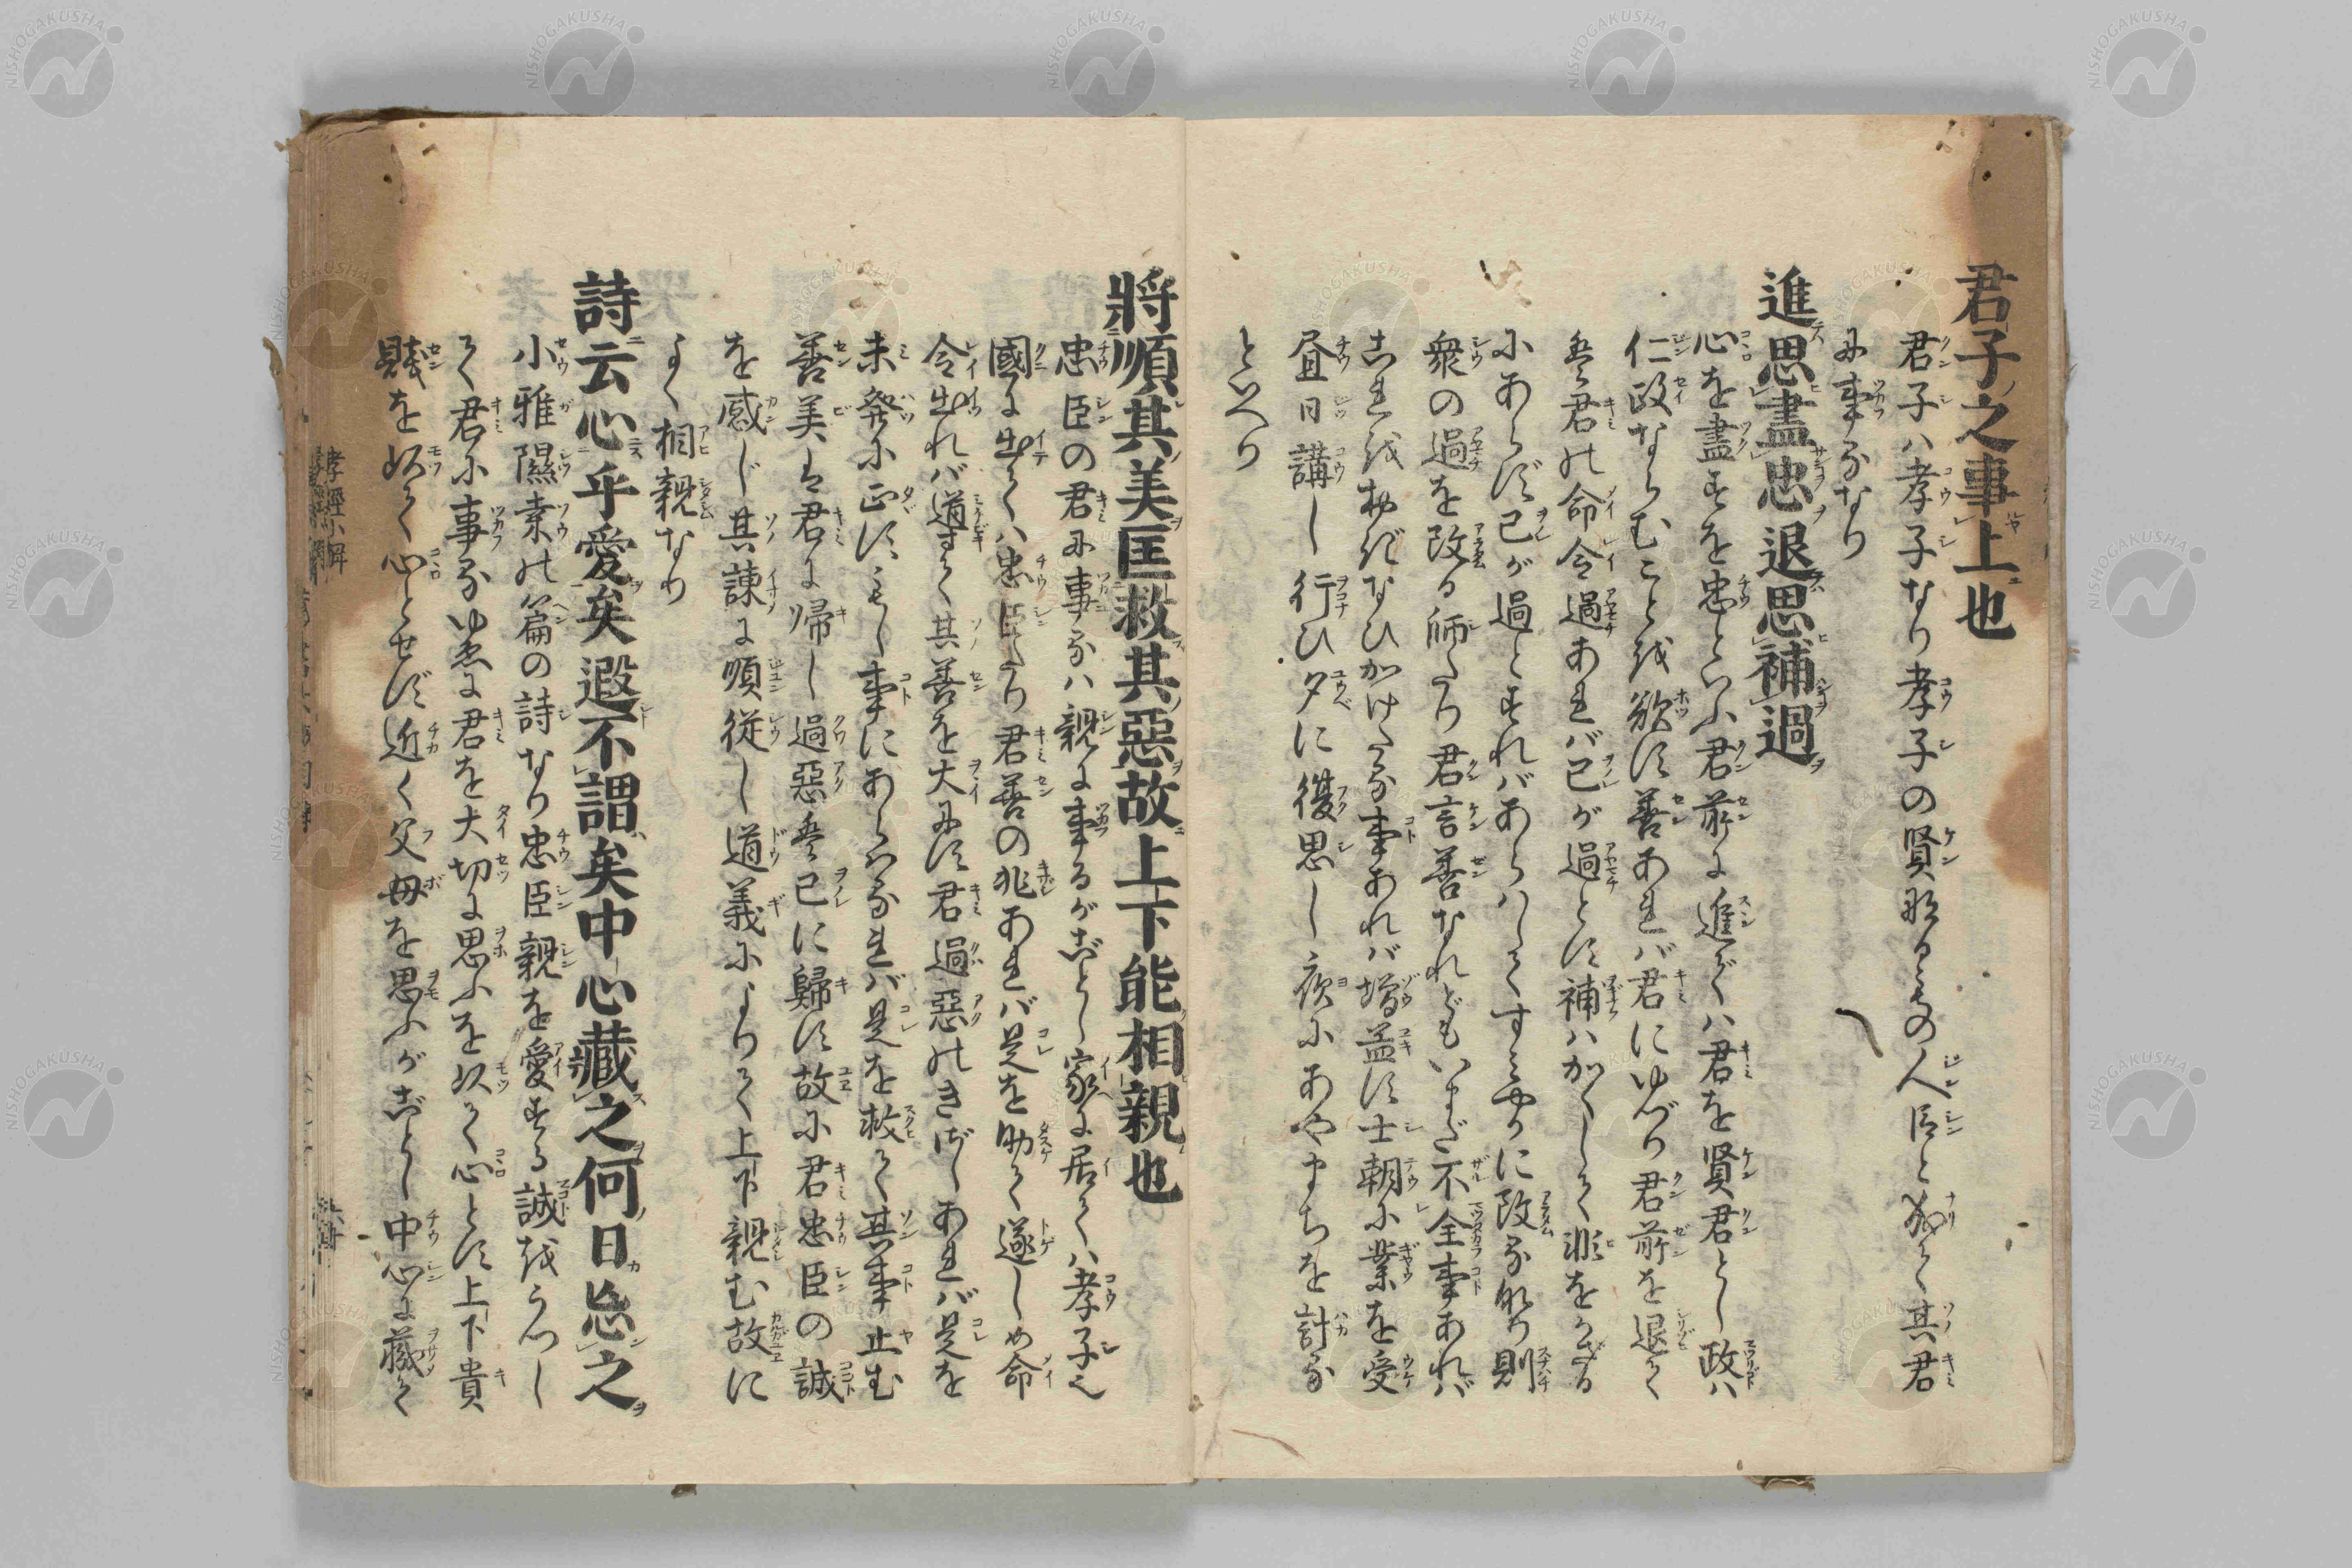 君子之事上也
君子ハ孝子なり孝子の賢なるもの人臣と成て其君
に事るなり
進思盡忠退思補過
心を盡すを忠といふ君前に進てハ君を賢君とし政ハ
仁政ならむことを欲す善あれバ君にゆづり君前を退て
君の命令過あれバ己が過とす補ハかくして非をかざる
にあらず己が過とすれバあらハしてすミやかに改るなり則
衆の過を改る師たり君言善なれどもいまだ不全事あれバ
これをおぎなひかけたる事あれバ増益す士朝に業を受
昼日講し行ひ夕に復思し夜にあやまちを計る
といへり
將順其美匡救其惡故上下能相親也
忠臣の君に事るハ親に事るがごとし家に居てハ孝子也
國に出てハ忠臣たり君善の兆あれバ是を助て遂しめ命
令出れバ道すて其善を大にす君過惡のきざしあれバ是を
未発に正すもし事にあらハるれバ是を救て其事止む
善美は君に帰し過惡己に歸す故に君忠臣の誠
を感じ其諫に順従し道義によりて上下親む故に
よく相親なり
詩云心乎愛矣遐不謂矣中心藏之何日忘之
小雅隰桑の篇の詩なり忠臣親を愛する誠をうつし
て君に事るゆゑに君を大切に思ふを以て心とす上下貴
賤を以て心とせず近く父母を思ふがごとし中心に藏て
孝經小解